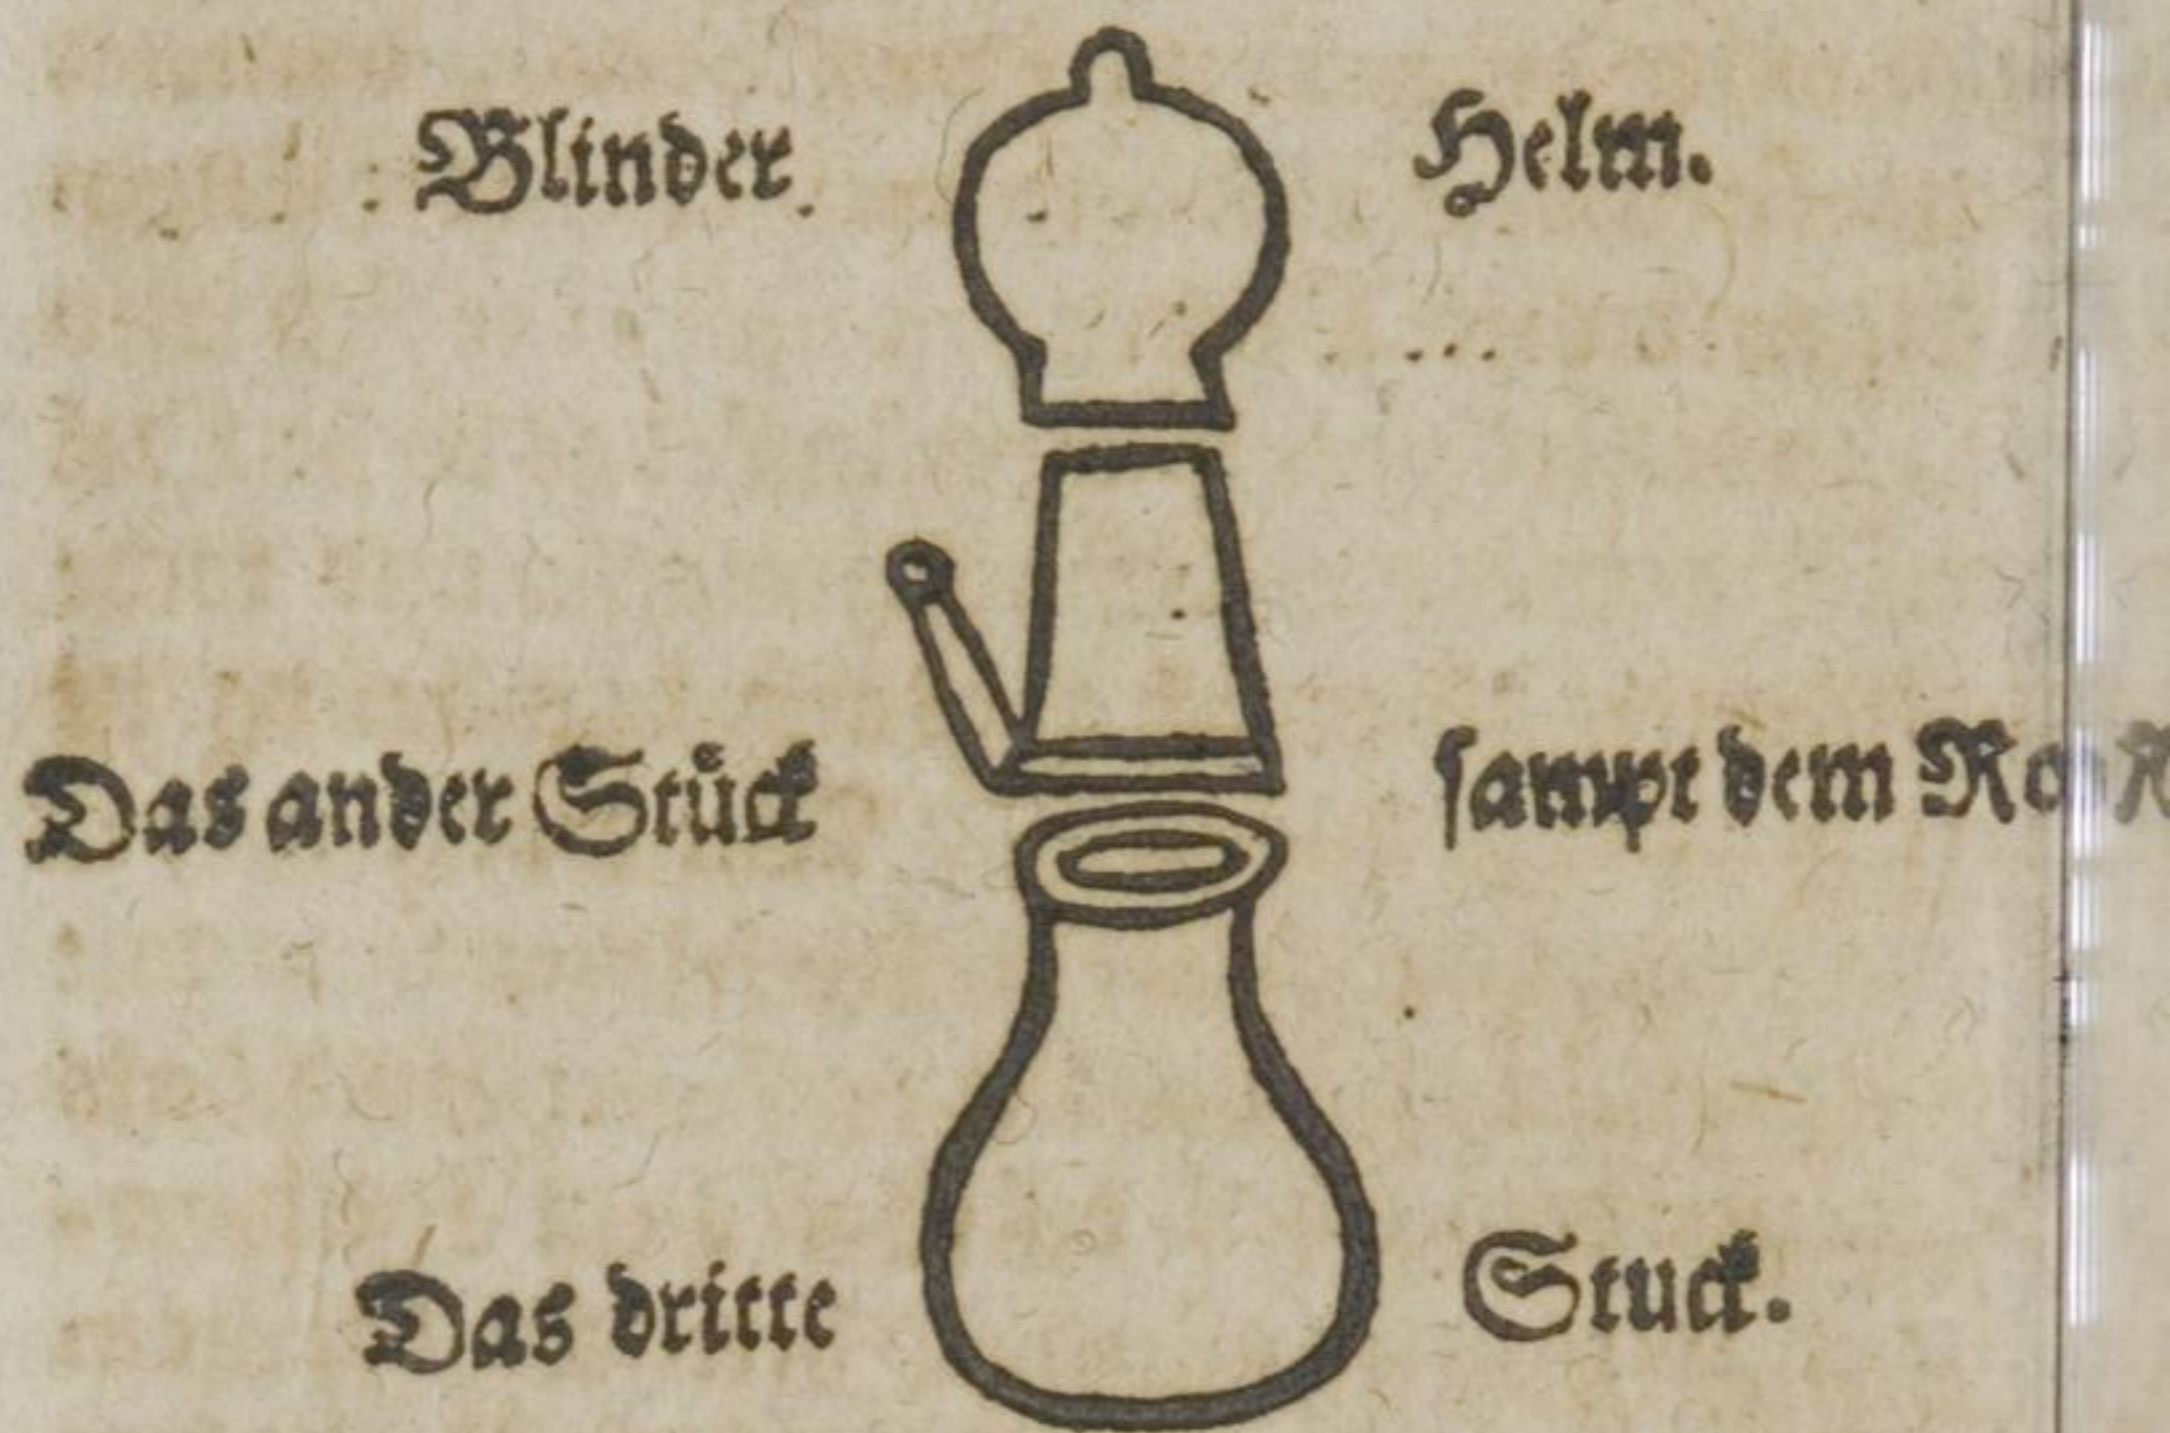 Blinder Helm.
Das ander Stuͤck ſampt dem
Das dritte Stuck.